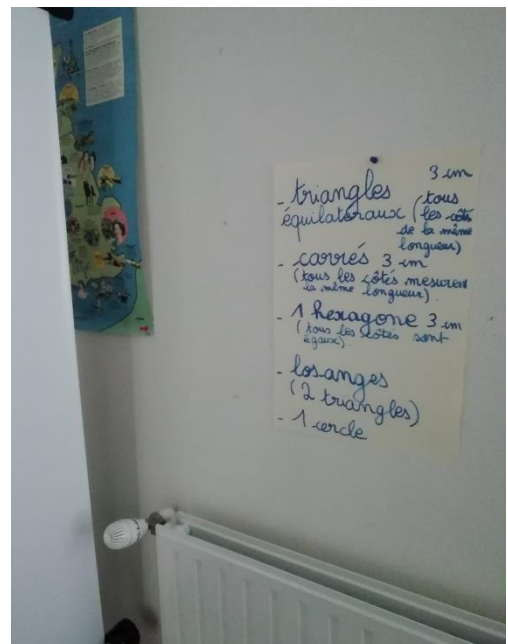 3 cm
- triangles (tous
équilatéraux les côtés
de la même
longueur)
- carrés 3 cm
(tous les côtés mesurent
la même longueur).
- 1 hexagone 3 cm
(tous les côtés sont
égaux).
- losanges
(2 triangles)
- 1 cercle